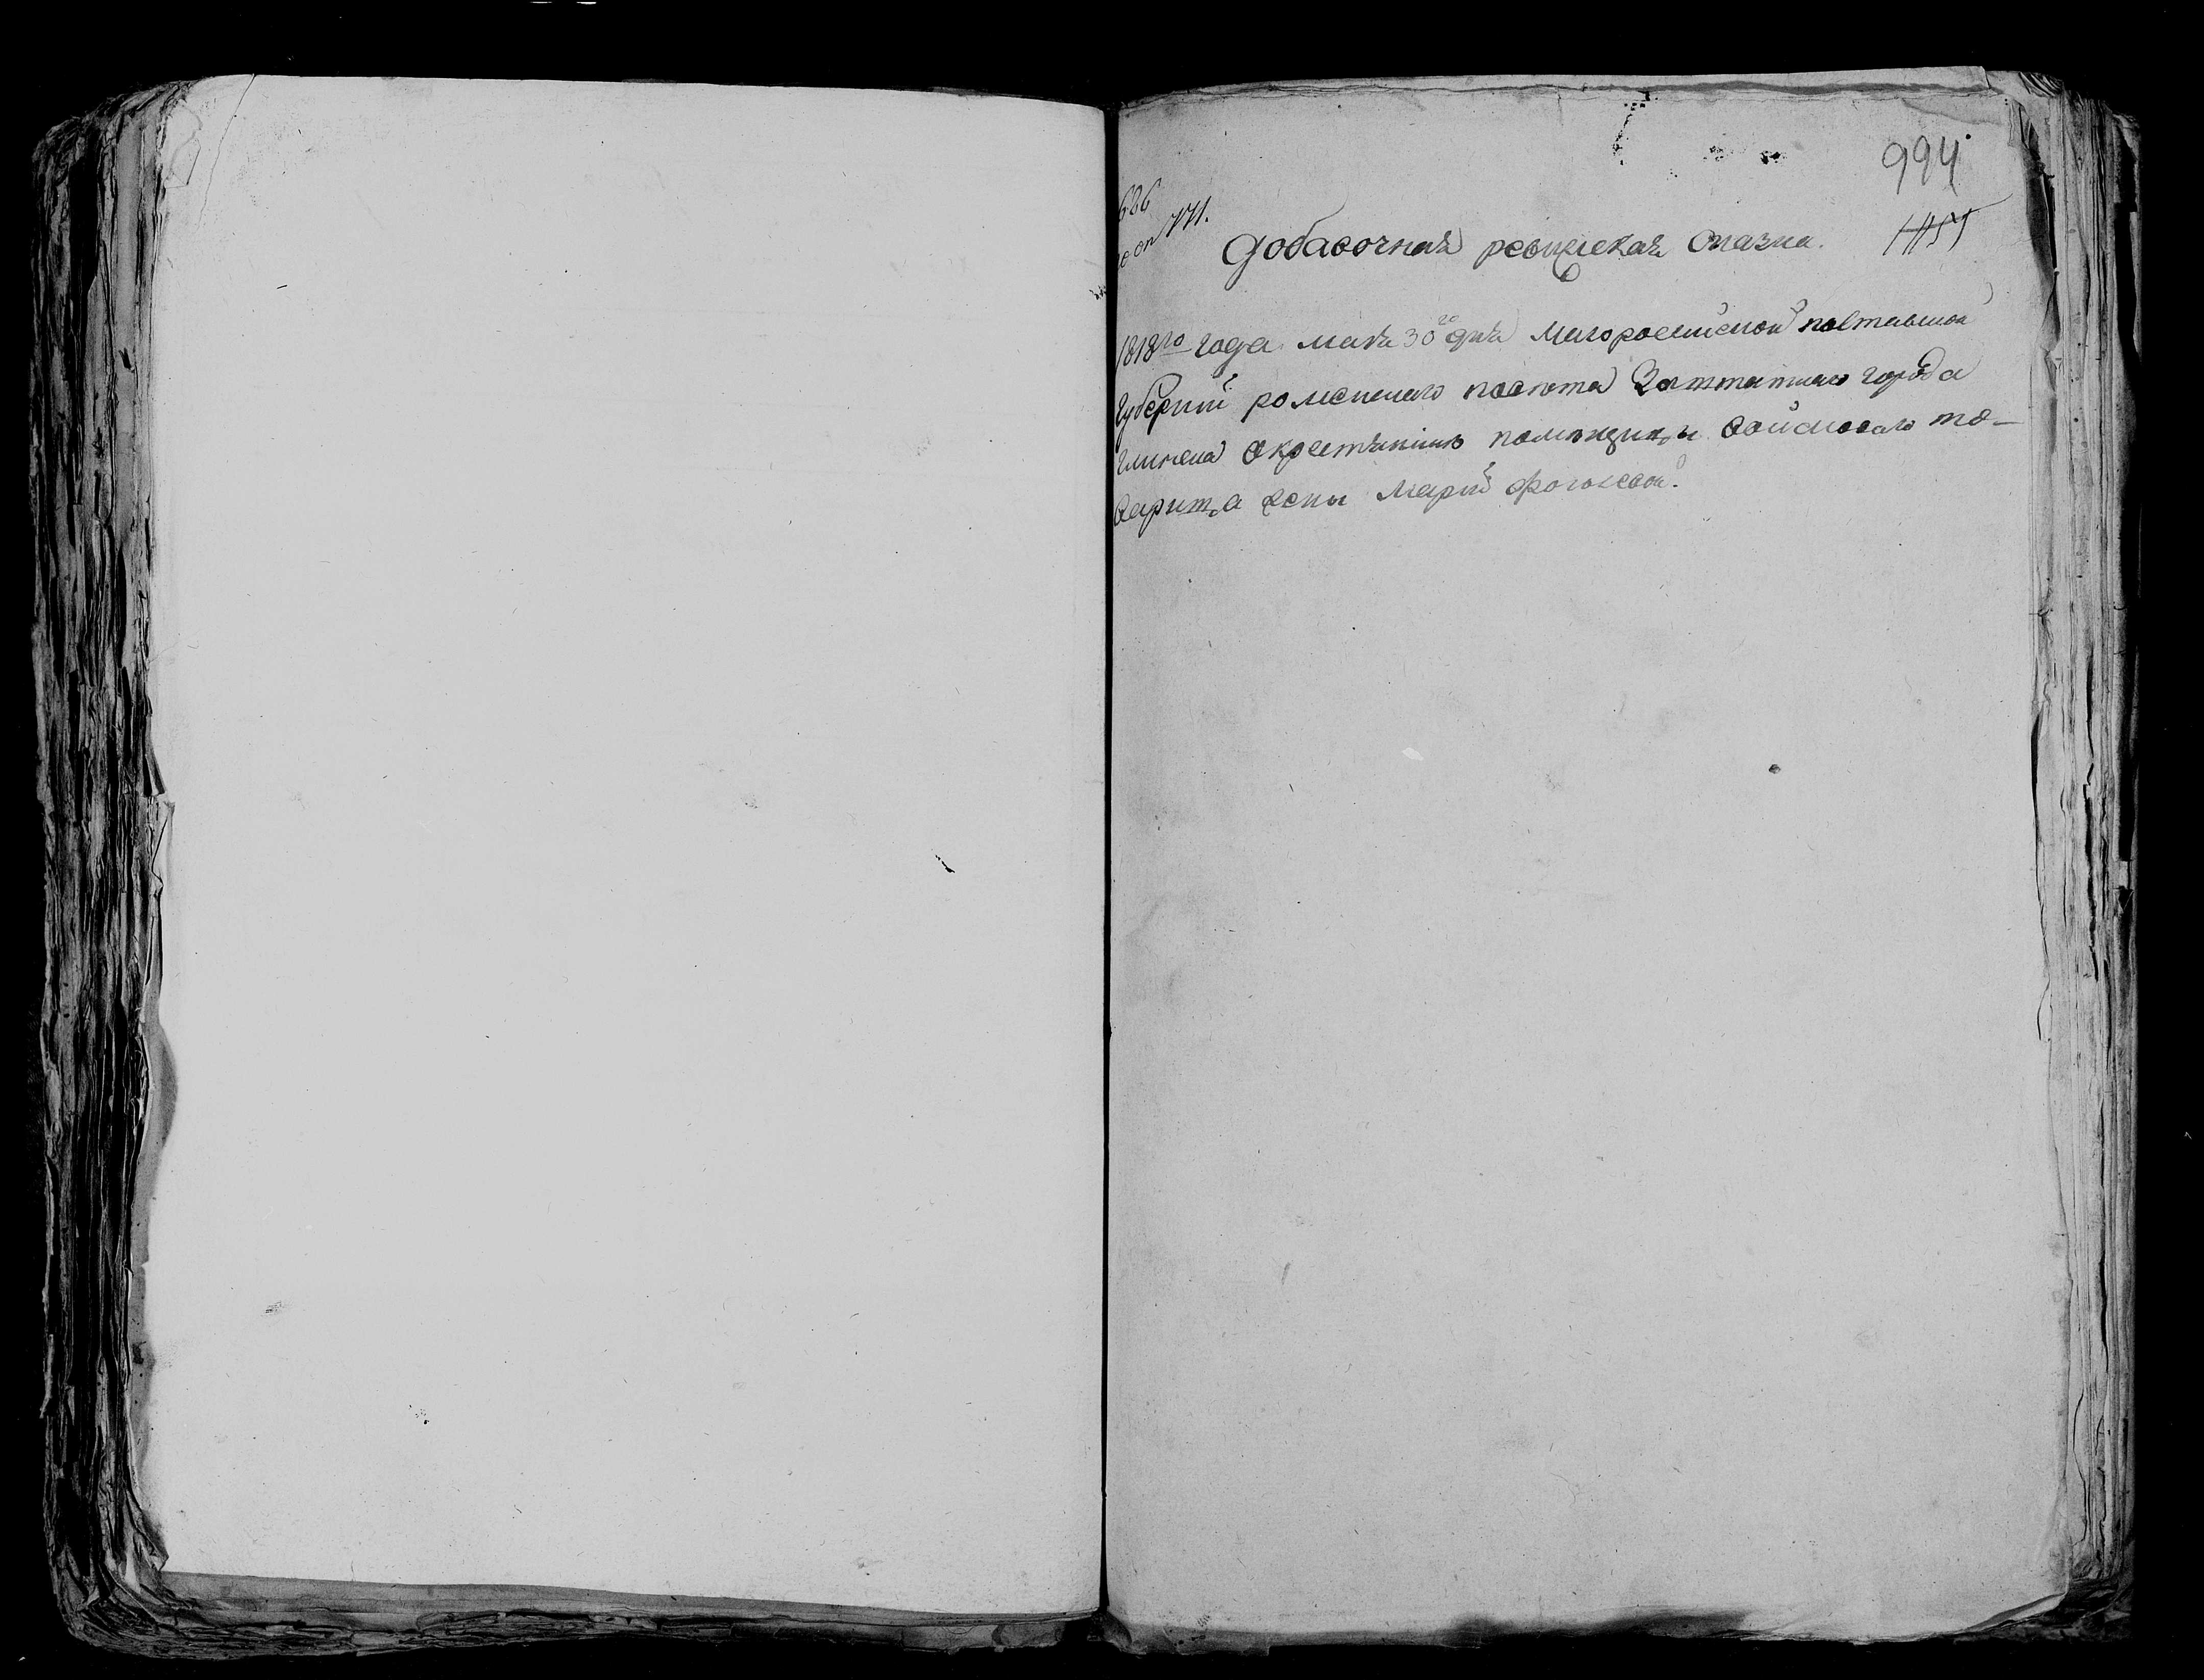 994
686
771.
Добавочная ревизская сказка.
1818го года мая 30го дня Малороссийской Полтавской
Губернии роменского повета Заштатного города
глинска о крестьянах помещицы войскового то-
варища жены Марии